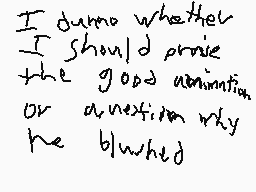 I dunno whether
I should praise
the good animation
or question why
he blushed